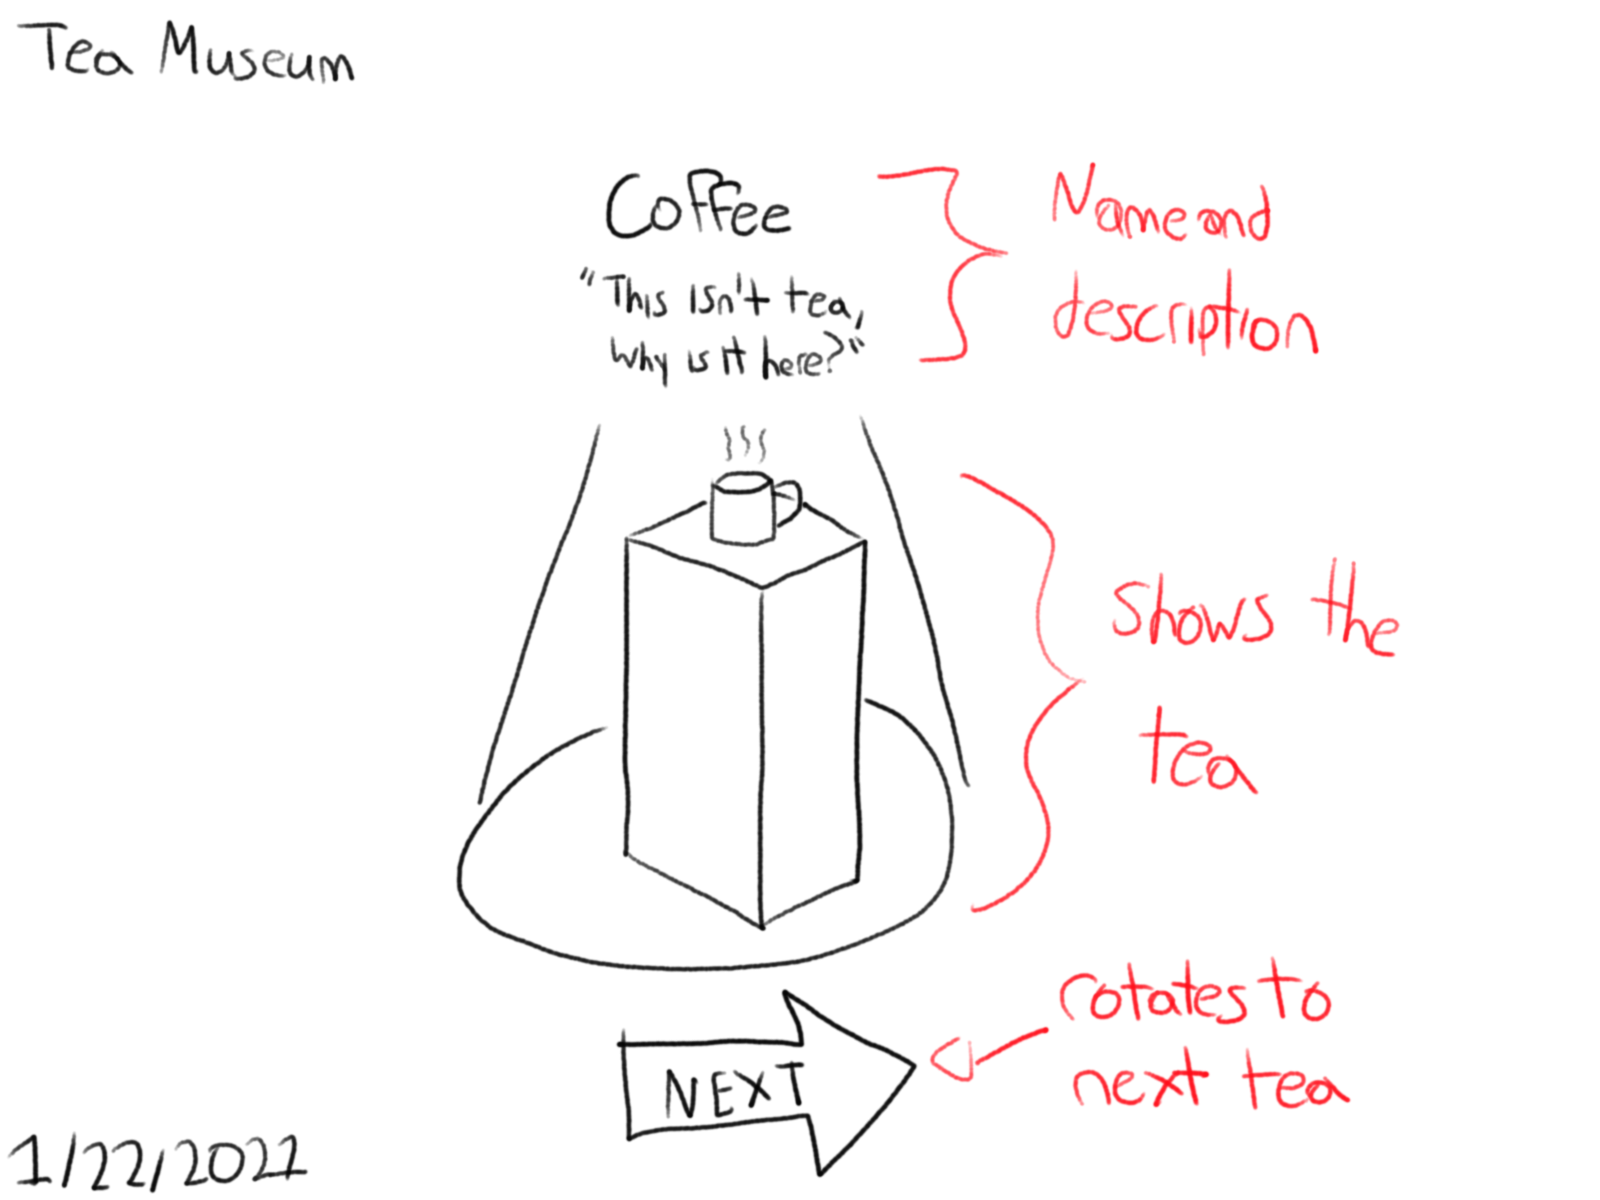 Tea Museum
Coffee
"This isn't tea,
why is it here?"
Name and
description
Shows the
tea
rotates to
next tea
NEXT
1/22/2022